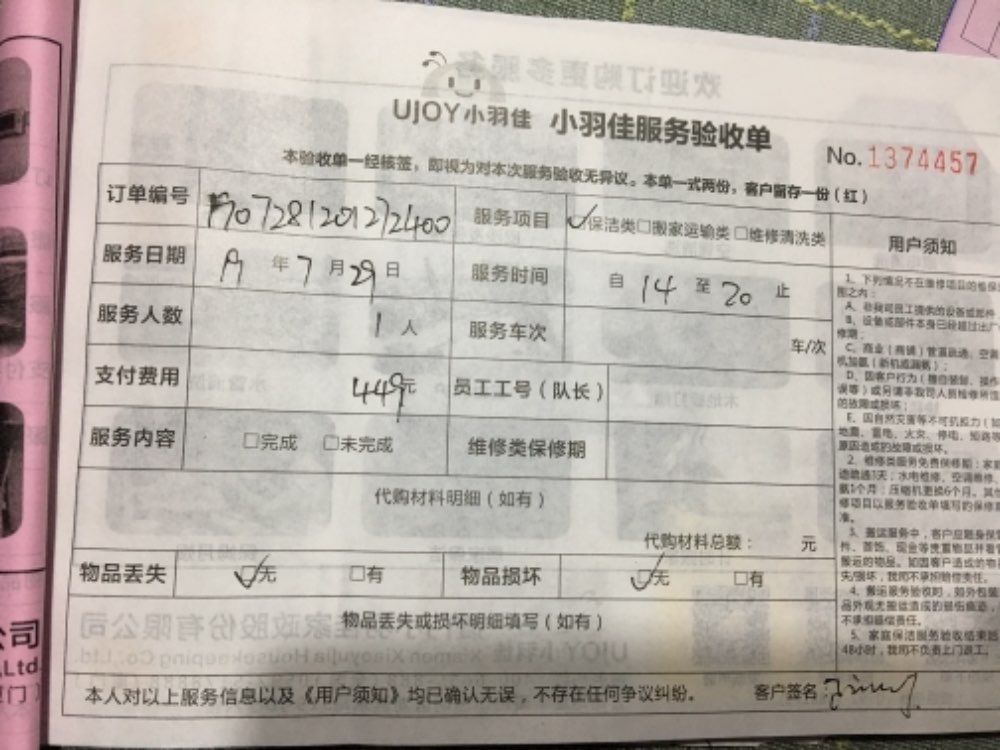 UJOY小羽佳 小羽佳服务验收单
No. 1374457
本验收单一经核签，即视为对本次服务验收无异议。本单一式两份，客户留存一份（红）
订单编号
服务项目 保洁类 □搬家运输类 □维修清洗类
服务日期 年 7 月 29 日
服务时间 自 14 至 20 止
服务人数 1 人
服务车次 车/次
支付费用 449元
员工工号（队长）
服务内容 □完成 □未完成
维修类保修期
代购材料明细（如有）
代购材料总额： 元
物品丢失 ☑无 □有
物品损坏 ☑无 □有
物品丢失或损坏明细填写（如有）
本人对以上服务信息以及《用户须知》均已确认无误，不存在任何争议纠纷。 客户签名：
用户须知
1、下列情况不在维修项目的维保
围之内：
A、非我司员工提供的设备或部件
B、设备或部件本身已经超过出厂
修期；
C、商业（商铺）管道疏通、空调
D、因客户行为（擅自装卸、操作
误等）或另请非我司人员检修所
的故障或损坏；
E、因自然灾害等不可抗力（如
地震、雷电、火灾、停电、短路等
原因造成的故障或损坏。
2、维修类服务免费保修期：家
道疏通3天；水电维修、空调维修、
氨1个月；压缩机更换6个月。其
修项目以服务验收单填写的保修
准。
3、搬运服务中，客户应随身保
件、首饰、现金等贵重物品并看
搬运的物品。如因客户造成的物
失/损坏，我司不承担赔偿责任。
4、搬运服务验收时，如外包装
品外观无搬运造成的损伤痕迹，
不承担赔偿责任。
5、家庭保洁服务验收结束超
48小时，我司不负责上门返工。
公司
,Ltd.